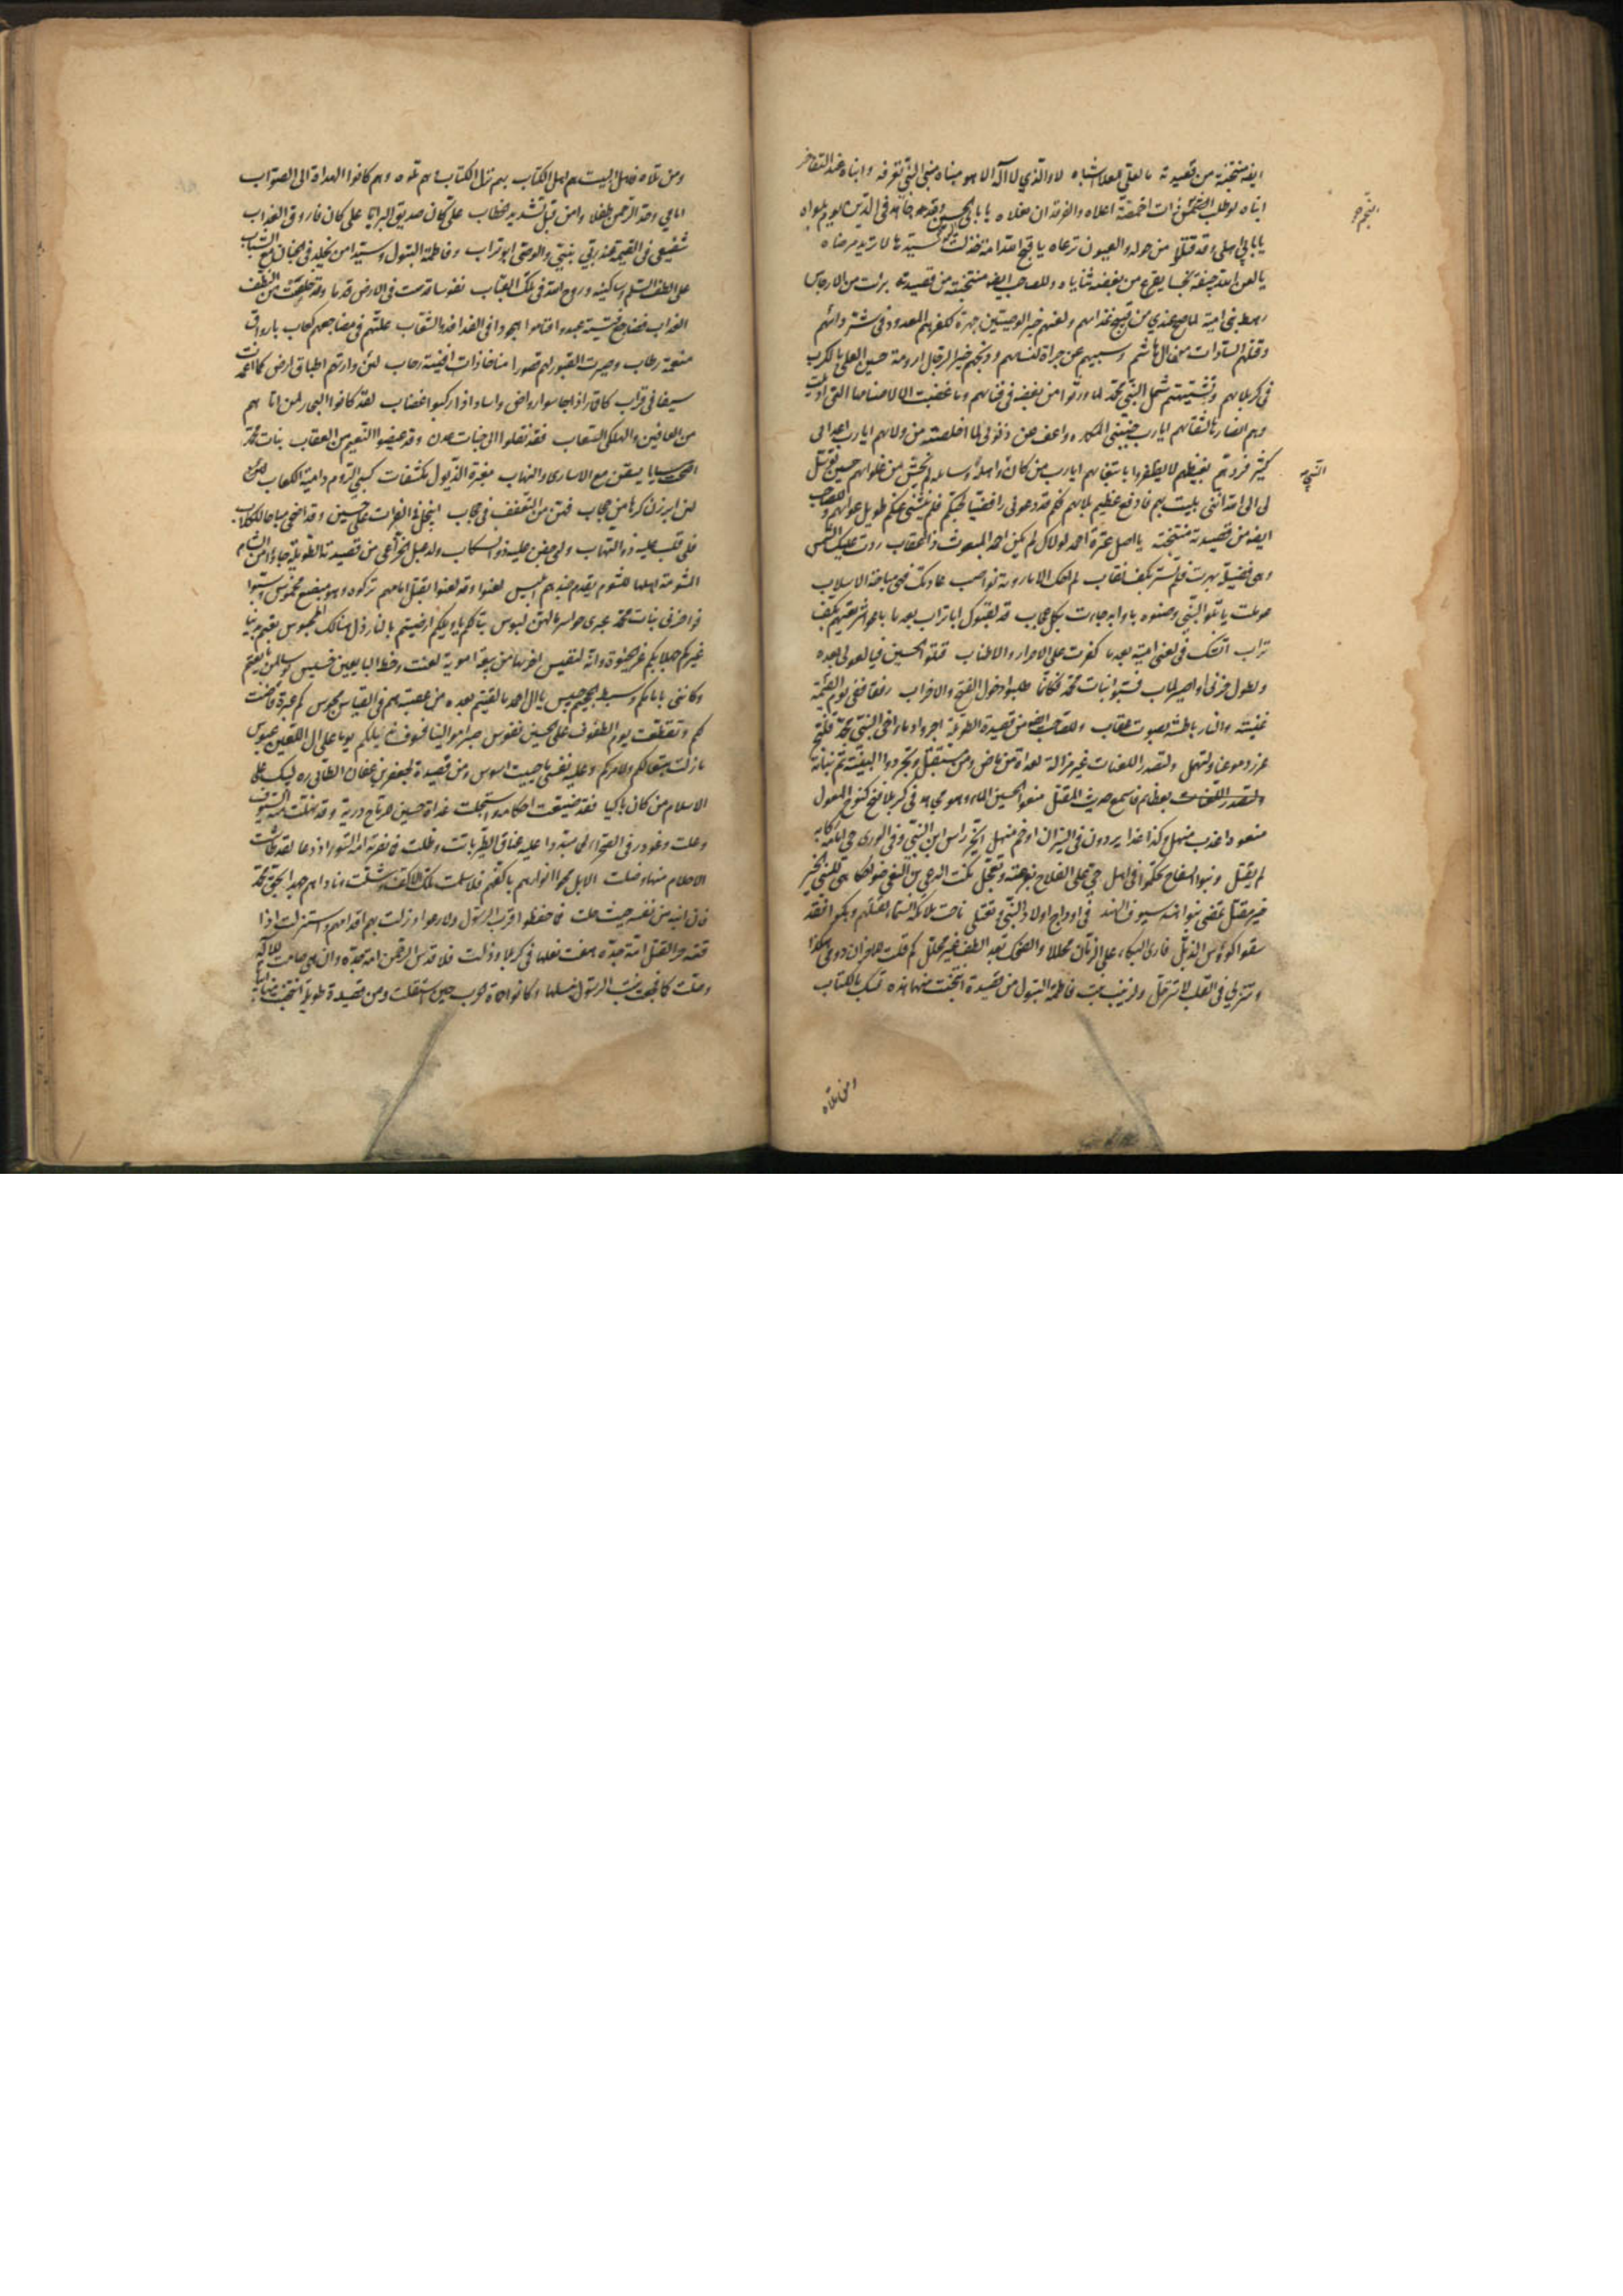 ايضا منتخبة من قصيدته ما لعلي العلا اشباه لا والذي لا اله الا هو مبناه مبنى النبي تعرفه وابناه عند التفاخر
ابناه لو طلب النجم ذات اخمصه اعلاه والفرقدان نعلاه يا بابي الحسين وقد جاهد في الدين يوم بلواه
يا بابي اهله وقد قتلوا من حوله والعيون ترعاه يا قبح الله امة خذلت سيدها لا تريد مرضاه
يا لعن الله جيفة نجسا يقرع من بغضه ثناياه وللصاحب ايضا منتخبة من قصيدته برئت من الارجاس
رهط بني امية لما صح عندي من قبيح غذائهم ولعنهم خير الوصيين جهرة لكفرهم المعدود في شر دائهم
وقتلهم السادات من ال هاشم وسبيهم عن جراة لنسائهم وذبحهم خير الرجال ارومة حسين العلى بالكرب
في كربلائهم وتشتيتهم شمل النبي محمد لما ورثوا من بغضه في فنائهم وما غضبت الا لاصنامها التي اديلت
وهم انصارها لشقائهم ايا رب جنبني المكاره واعف عن ذنوبي لما اخلصته من ولائهم ايا رب اعدائي
كثير فزدهم بغيظهم لا يظفروا بابتغائهم ايا رب من كان النبي واهله وسائله لم يخش من غلوائهم حسين توسل
لي الى الله انني بليت بهم فادفع عظيم بلائهم فكم قد دعوني رافضيا لحبكم فلم ينثني عنكم طويل عوائهم وللصاحب
ايضا من قصيدته منتخبة يا اصل عترة احمد لولاك لم يكن احمد المبعوث ذا اعقاب ردت عليك الشمس
وهي فضيلة بهرت فلم تستر بكف نقاب لم احك الا ما روته نواصب عادتك فهي مباحة الاسلاب
عوملت يا تلو النبي وصنوه باوابد جاءت بكل عجاب قد لقبوك ابا تراب بعدما باعوا شريعتهم بكف
تراب اتشك في لعني امية بعدما كفرت على الاحرار والاطياب قتلوا الحسين فيا لعولي بعده
ولطول حزني او اصير لما بي فسبوا بنات محمد فكانما طلبوا دخول الفتح والاحزاب رفقا ففي يوم القيمة
غنية والنار باطشة بصوت عقاب وللصاحب ايضا من قصيدته الطويلة اجروا دماء اخي النبي محمد فلتجر
غزر دموعنا ولتهمل ولتصدر اللعنات غير مزالة لعداه من ماض ومن مستقبل وتجردوا لبنيه ثم بناته
بعظائم فاسمع حديث المقتل منعوا الحسين الماء وهو مجاهد في كربلا فنح كنوح المعول
منعوه اعذب منهل وكذا غدا يردون في النيران اوخم منهل ايحز راس ابن النبي وفي الورى حي امام ركابه
لم يقتل وبنو السفاح تحكموا في اهل حي على الفلاح بفرصة وتعجل نكت الدعي ابن البغي ضواحكا هي للنبي الخير
خير مقبل تمضي بنو هند سيوف الهند في اوداج اولاد النبي وتعتلي ناحت ملائكة السماء لقتلهم وبكوا فقد
سقوا كؤوس الذبل فارى البكاء على الزمان محللا والضحك بعد الطف غير محلل كم قلت للاحزان دومي هكذا
وتنزلي في القلب لا تترحلي ولزينب بنت فاطمة البتول من قصيدة انتخبت منها هذه تمسك بالكتاب
ومن تلاه
ومن تلاه فاهل البيت هم اهل الكتاب بهم نزل الكتاب وهم تلوه وهم كانوا الهداة الى الصواب
امامي وحد الرحمن طفلا وامن قبل تشديد خطاب علي كان صديق البرايا علي كان فاروق العذاب
شفيعي في القيمة عند ربي نبيي والوصي ابو تراب وفاطمة البتول وسيدا من يخلد في الجنان مع الشباب
على الطف السلام وساكنيه وروح الله في تلك القباب نفوسا قدست في الارض قدما وقد خلقت من النطف
العذاب مضاجع فتية عبدوا فناموا هجودا في الفدافد والشعاب علتهم في مضاجعهم كعاب باوراق
منعمة رطاب وصيرت القبور لهم قصورا مناخا ذات افنية رحاب لئن وارتهم اطباق ارض كما اغمدت
سيفا في قراب كاقمار اذا جاسوا رواض واساد اذا ركبوا غضاب لقد كانوا البحار لمن اتاهم
من العافين والهلكى السغاب فقد نقلوا الى جنات عدن وقد عيضوا النعيم من العقاب بنات محمد
اضحت سبايا يسقن مع الاسارى والنهاب مغبرة الذيول مكشفات كسبي الروم دامية الكعاب
لئن ابرزن كرها من حجاب فهن من التعفف في حجاب ايبخل في الفرات على حسين وقد اضحى مباحا للكلاب
فلي قلب عليه ذو التهاب ولي جفن عليه ذو انسكاب ولدعبل الخزاعي من قصيدته الطويلة جاءوا من الشام
المشومة اهلها للشوم يقدم جندهم ابليس لعنوا وقد لعنوا بقتل امامهم تركوه وهو مبضع مخموس وسبوا
فواحزني بنات محمد عبرى حواسر ما لهن لبوس تبا لكم يا ويلكم ارضيتم بالنار ذل هنالك المحبوس بعتم بدنيا
غيركم جهلا بكم عز الحيوة وانه لنفيس اخز بها من بيعة اموية لعنت وحظ البايعين خسيس بؤسا لمن بايعتم
وكانني بامامكم وسط الجحيم حبيس يا ال احمد ما لقيتم بعده من عصبة هم في القياس مجوس كم عبرة فاضت
لكم وتقطعت يوم الطفوف على الحسين نفوس صبرا موالينا فسوف نديلكم يوما على ال اللعين عبوس
ما زلت متبعا لكم ولامركم وعليه نفسي ما حييت اسوس ومن قصيدة لجعفر بن عفان الطائي ره ليبك على
الاسلام من كان باكيا فقد ضيعت احكامه واستحلت غداة حسين للرماح درية وقد نهلت منه السيوف
وعلت وغودر في الصحراء لحما مبددا عليه عناق الطير باتت وظلت فما نصرته امة السوء اذ دعا لقد طاشت
الاحلام منها وضلت الا بل محوا انوارهم باكفهم فلا سلمت تلك الاكف وشلت وناداهم جهدا بحق محمد
فان ابنه من نفسه حيث حلت فما حفظوا قرب الرسول ولا رعوا وزلت بهم اقدامهم واستزلت اذا
قته حر القتل امة جده هفت نعلها في كربلا وزلت فلا قدس الرحمن امة جده وان هي صامت للاله
وصلت كما فجعت بنت الرسول بنسلها وكانوا حماة الحرب حين استقلت ومن قصيدة طويلة انتخبت